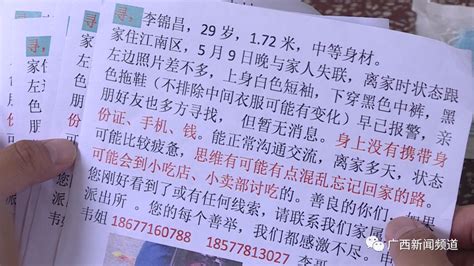 寻，李锦昌，29 岁，1.72 米，中等身材。
家住江南区，5 月 9 日晚与家人失联，离家时状态跟
左边照片差不多，上身白色短袖，下穿黑色中裤，黑
色拖鞋（不排除中间衣服可能有变化）早已报警，亲
朋好友也多方寻找，但暂无消息。身上没有携带身
份证、手机、钱。能正常沟通交流，离家多天，状态
可能比较疲惫，思维有可能有点混乱忘记回家的路。
可能会到小吃店、小卖部讨吃的。善良的你们，如果
您刚好看到了或有任何线索，请联系我们家属
派出所。您的每个善举，我们都感激不尽。
韦姐 18677160788 18577813027 李哥
广西新闻频道